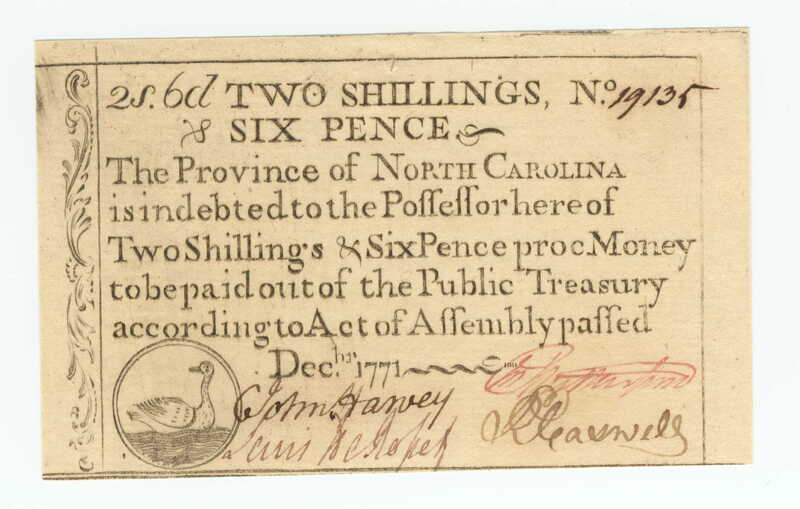 2s. 6d TWO SHILLINGS, No. 19135
& SIX PENCE
The Province of NORTH CAROLINA
is indebted to the Poſſeſſor hereof
Two Shillings & Six Pence proc Money
to be paid out of the Public Treasury
according to Act of Aſſembly paſſed
Dec.br 1771
John Harvey
Lewis
R Caswell